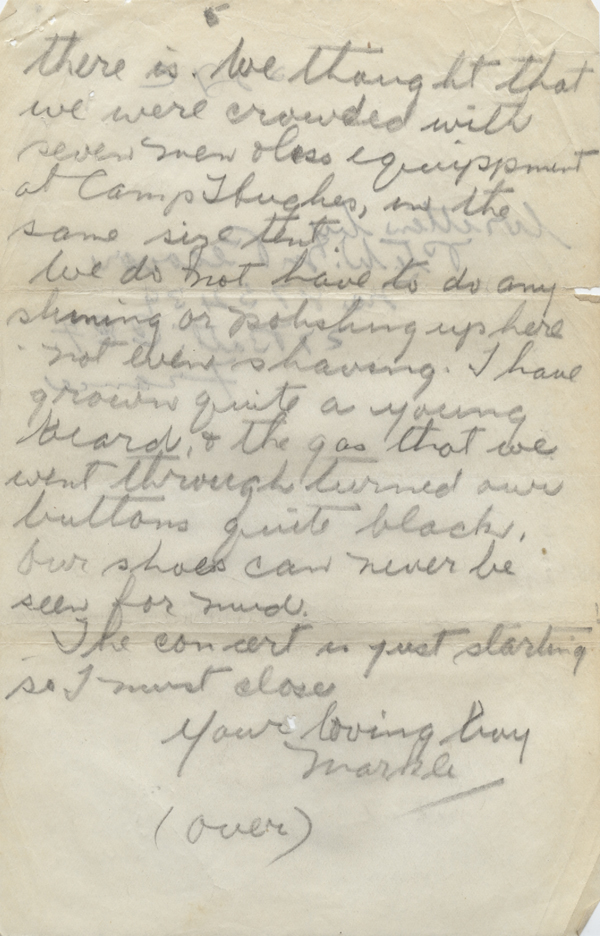 5
there is. We thought that
we were crowded with
seven men & less equippment
at Camp Hughes, in the
same size tent.
We do not have to do any
shining or polishing up here
not even shaving. I have
grown quite a young
beard, & the gas that we
went through turned our
buttons quite black.
Our shoes can never be
seen for mud.
The concert is just starting
so I must close
Your loving boy
Markle
(over)